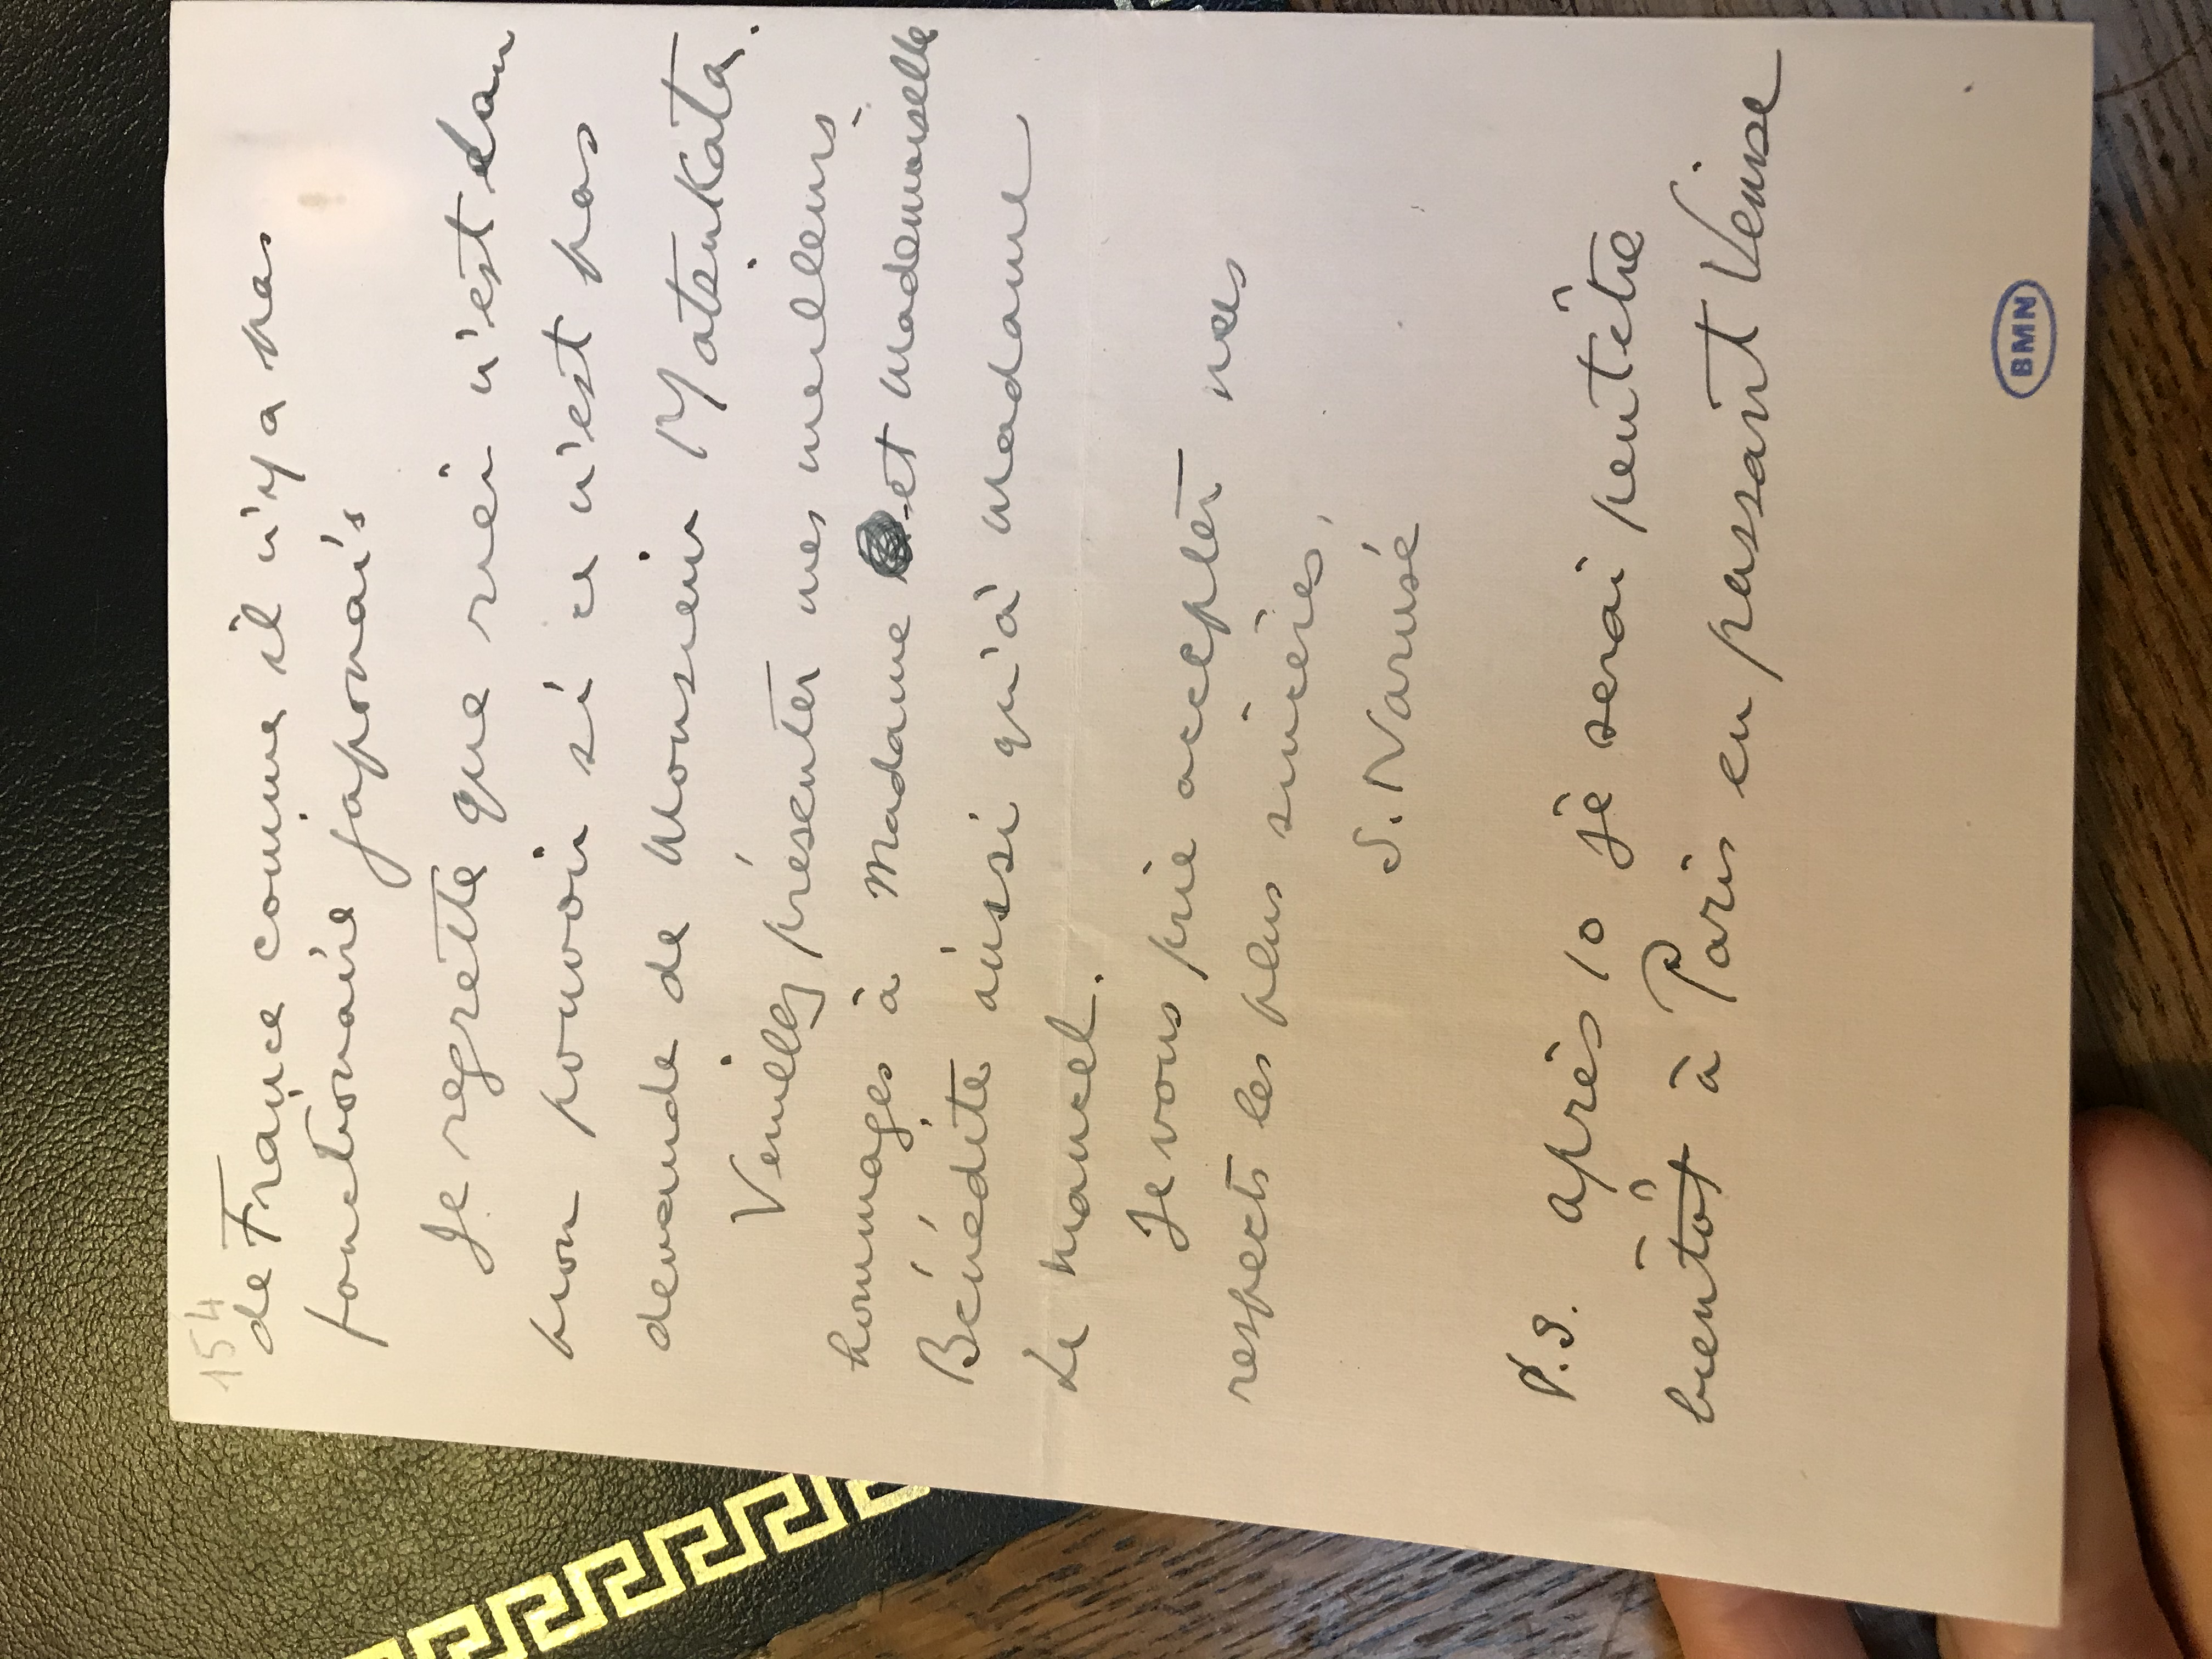 154
de France comme il n'y a pas
fonctionaire japonais
Je regrette que rien n'est dan
mon pouvoir si ce n'est pas
demende de Monsieur Matsukata.
Veuillez présenter mes meilleurs
hommages à Madame et Mademoiselle
Bénédite ainsi qu'à Madame
Le Mancel.
Je vous prie accepter mes
respects les plus sincères,
S. Narusé
P.S. après 10 je serai peutêtre
bientôt à Paris en passant Venise
BMN